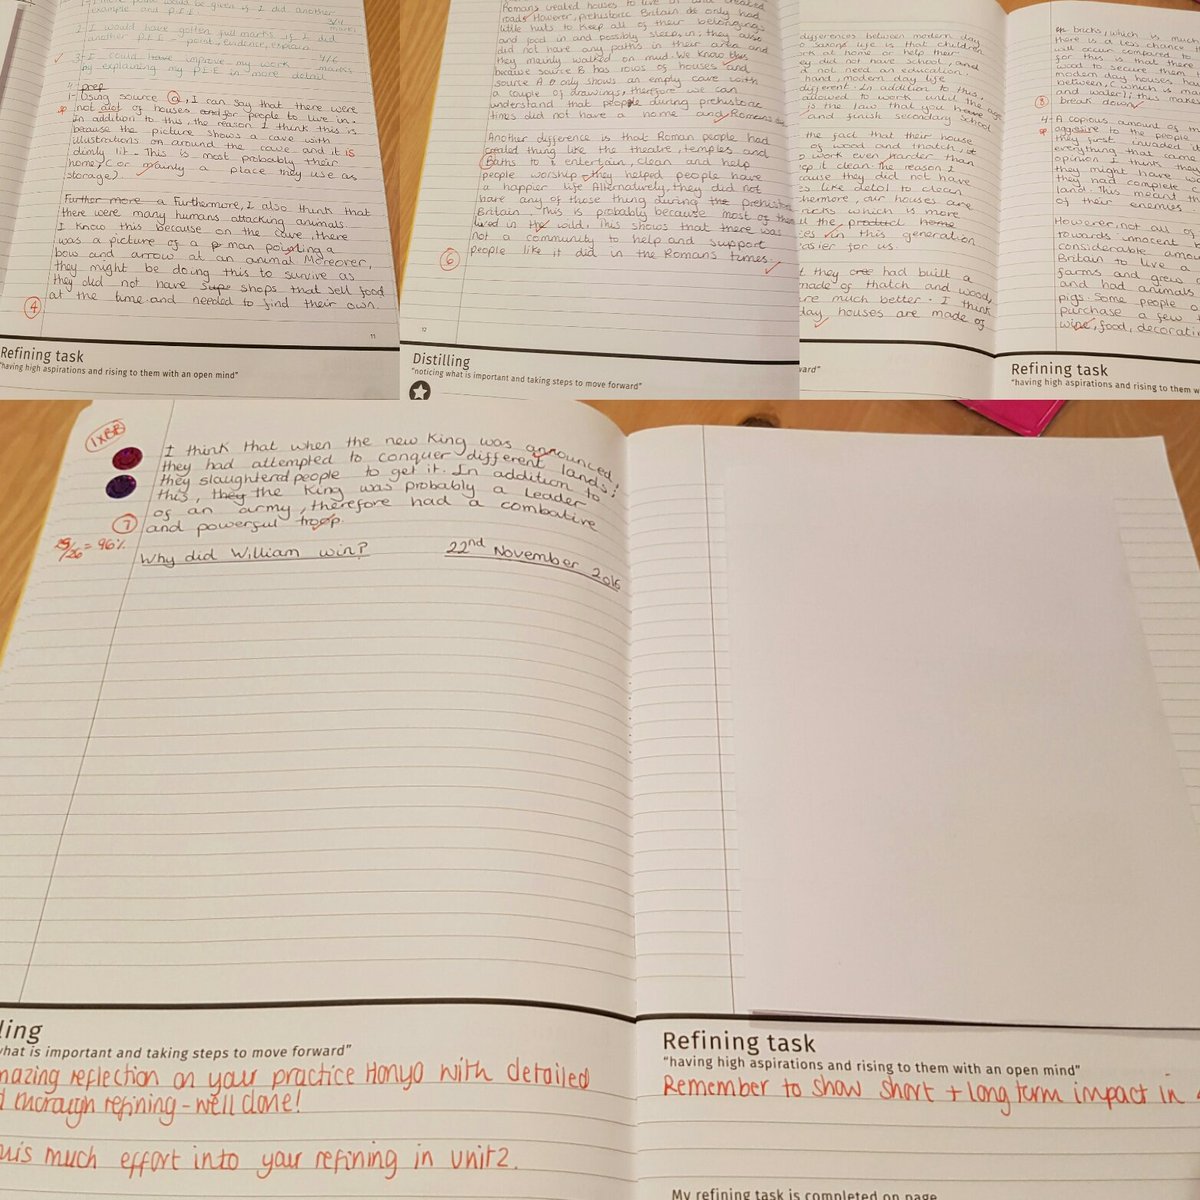 example and P.E.E.
3/4
2. I would have gotten full marks if I did marks
another P.E.E - point, evidence, explain
3. I could have improve my work 4/6
by explaining my P.E.E in more detail. marks
prep
1- Using source a, I can say that there were
not alot of houses and for people to live in.
In addition to this, the reason I think this is
because the picture shows a cave with
illustrations on around the cave and it is
dimly lit. This is most probably their
home, (or mainly a place they use as
storage).
Further more a Furthermore, I also think that
there were many humans attacking animals.
I know this because on the cave, there
was a picture of a man pointing a
bow and arrow at an animal. Moreover,
they might be doing this to survive as
they did not have shops that sell food
at the time and needed to find their own.
4
11
Refining task
"having high aspirations and rising to them with an open mind"
Romans created houses to live in and created
roads. However, prehistoric Britain only had
little huts to keep all of their belongings
and food in and possibly sleep in, they also
did not have any paths in their area and
they mainly walked on mud. We know this
because source B has rows of houses and
source A only shows an empty cave with
a couple of drawings, therefore we can
understand that people during prehistoric
times did not have a home and Romans
Another difference is that Roman people had
created thing like the theatre, temples and
Baths to entertain, clean and help
people worship they helped people have
a happier life. Alternatively, they did not
have any of those thing during the prehistoric
Britain, This is probably because most of them
lived in the wild. This shows that there was
not a community to help and support
people like it did in the Romans times.
6
12
Distilling
"noticing what is important and taking steps to move forward"
differences between modern day
Saxons life is that children
at home or help their
did not have school, and
not need an education.
hand, modern day life
different. In addition to this,
allowed to work until the age
is the law that you have
and finish secondary school
the fact that their house
of wood and thatch, it
work even harder than
it clean. The reason I
because they did not have
like detol to clean
our houses are
bricks which is more
the product home
in this generation
easier for us.
they had built a
made of thatch and wood,
are much better. I think
day houses are made of
bricks, which is much
there is a less chance
will occur compared to
for this is that there
wood to secure them
modern day houses
between, (which is
and water); this
break down
8
4- A copious amount of
aggresive to the people
they first invaded
everything that came
opinion I think they
they might have
they had complete
land. This meant
of their enemies
However, not all of
towards innocent
considerable
Britain to live a
farms and grew
and had animals
pigs. Some people
purchase a few
wine, food,
Refining task
"having high aspirations and rising to them w
1xBB
I think that when the new King was announced,
they had attempted to conquer different lands;
they slaughtered people to get it. In addition to
this, they the King was probably a Leader
of an army, therefore had a combative
and powerful troop.
7
25/26 = 96%
Why did William win? 22nd November 2016
ling
what is important and taking steps to move forward"
mazing reflection on your practice Honyo with detailed
d thorough refining - well done!
much effort into your refining in unit 2.
Refining task
"having high aspirations and rising to them with an open mind"
Remember to show short + long term impact in
My refining task is completed on page